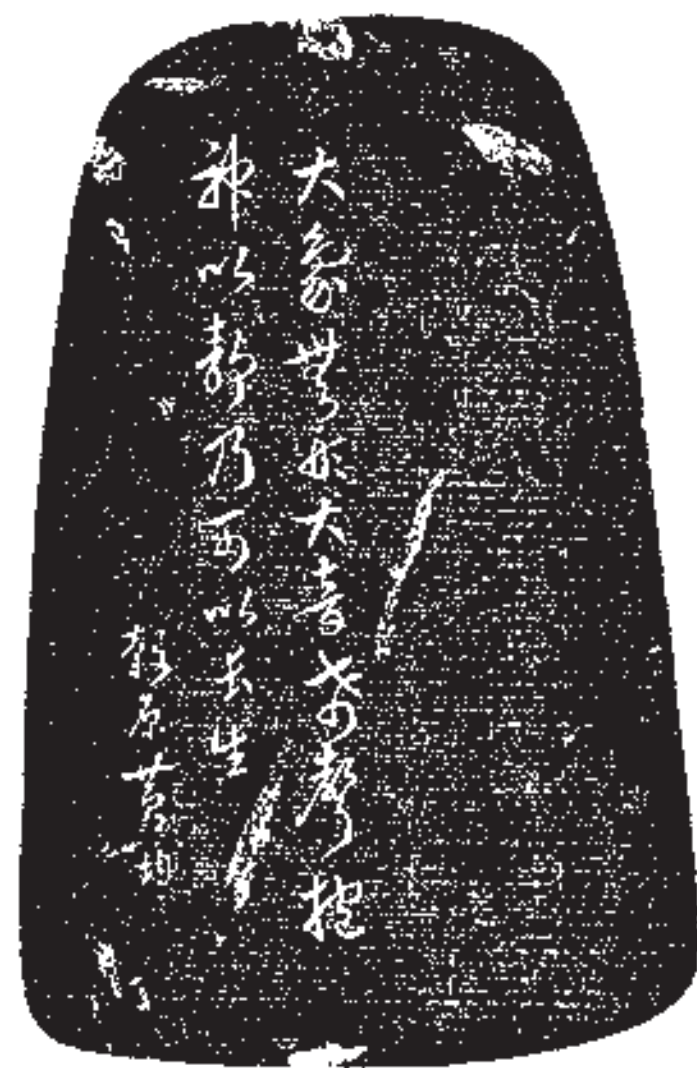 大象無形大音希聲抱
神以靜乃可以長生
穀原黃均